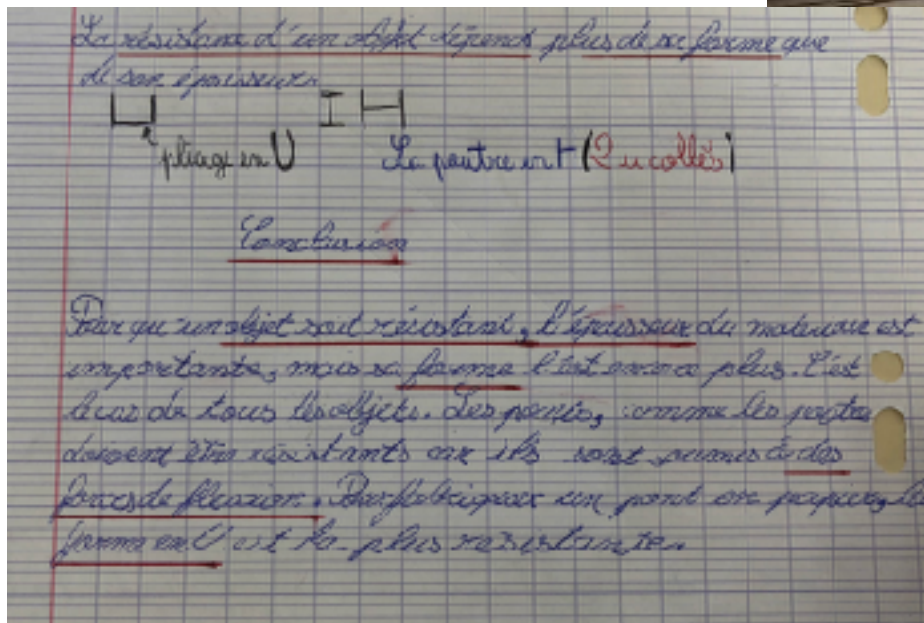 La résistance d'un objet dépend plus de sa forme que
de son épaisseur.
pliage en U La poutre en H (2 u collés)
Conclusion
Pour qu'un objet soit résistant, l'épaisseur du materiau est
importante, mais sa forme l'est encore plus. C'est
le cas de tous les objets. Les ponts, comme les
doivent être résistants car ils sont soumis à des
forces de flexion. Pour fabriquer un pont en papier, la
forme en U est la plus resistante.